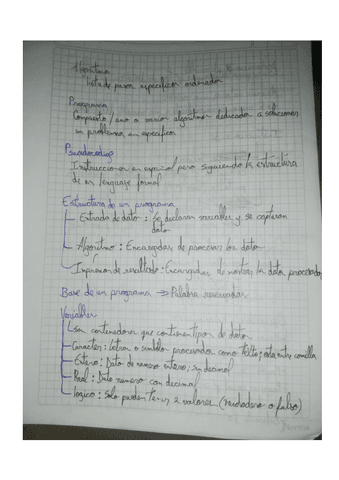 Algoritmo
lista de pasos específicos ordenados
Programa
Compuesto / uno o varios algoritmos dedicados a solucionar
un problema en específico
Pseudocódigo
Instrucciones en español pero siguiendo la estructura
de un lenguaje formal
Estructura de un programa
Entrada de dato: Se declaran variables y se capturan
dato
Algoritmo: Encargados de procesar los datos
Impresion de resultado: Encargados de mostrar la data procesados
Base de un programa → Palabra reservadas
Variables
Son contenedores que contienen tipos de datos
Caracter: Letras o simbolo procesados como texto; esta entre comilla
Entero: Dato de numero entero; sin decimal
Real: Dato numero con decimal
Logico: Solo pueden tener 2 valores (verdadero o falso)